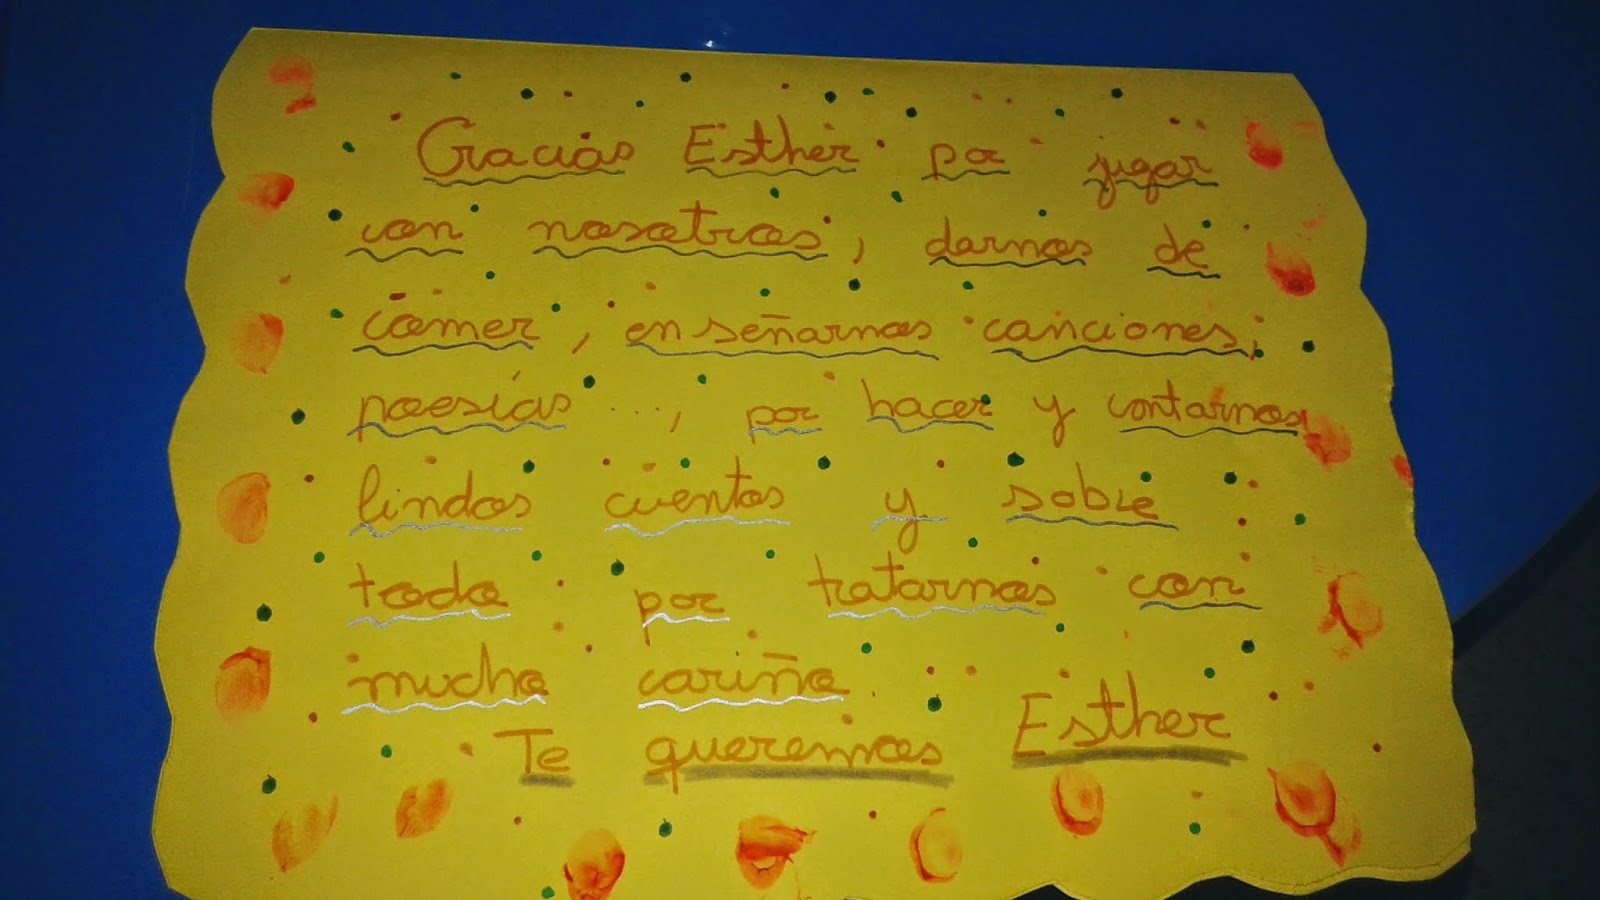 Gracias Esther por jugar
con nosotros, darnos de
comer, enseñarnos canciones,
poesías ..., por hacer y contarnos
lindos cuentos y sobre
todo por tratarnos con
mucho cariño.
Te queremos Esther